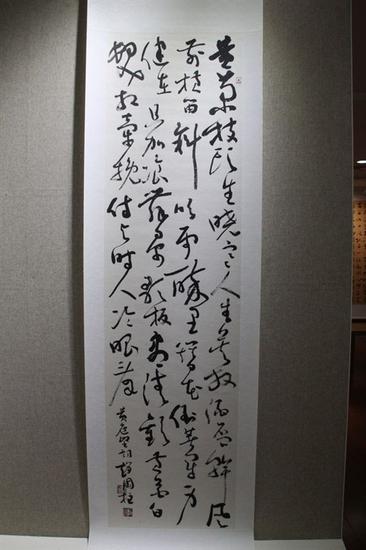 黄菊枝头生晓寒人生莫放酒杯干风
前横笛斜吹雨醉里簪花倒著冠身
健在且加餐舞裙歌板尽清欢黄花白
发相牵挽付与时人冷眼看
黄庭坚词 赵国柱